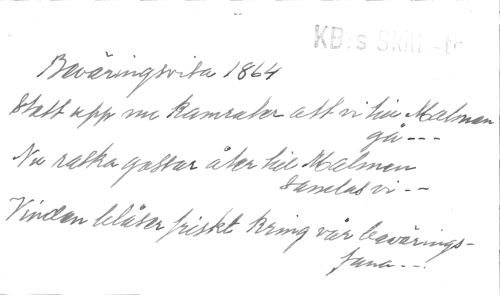 KB:s Skill-tr
Beväringsvisa 1864
Statt upp nu Kamrater att vi till Malmen
gå---
Nu raska gossar åter till Malmen
samlas vi--
Vinden blåser friskt kring vår bevärings-
fana---